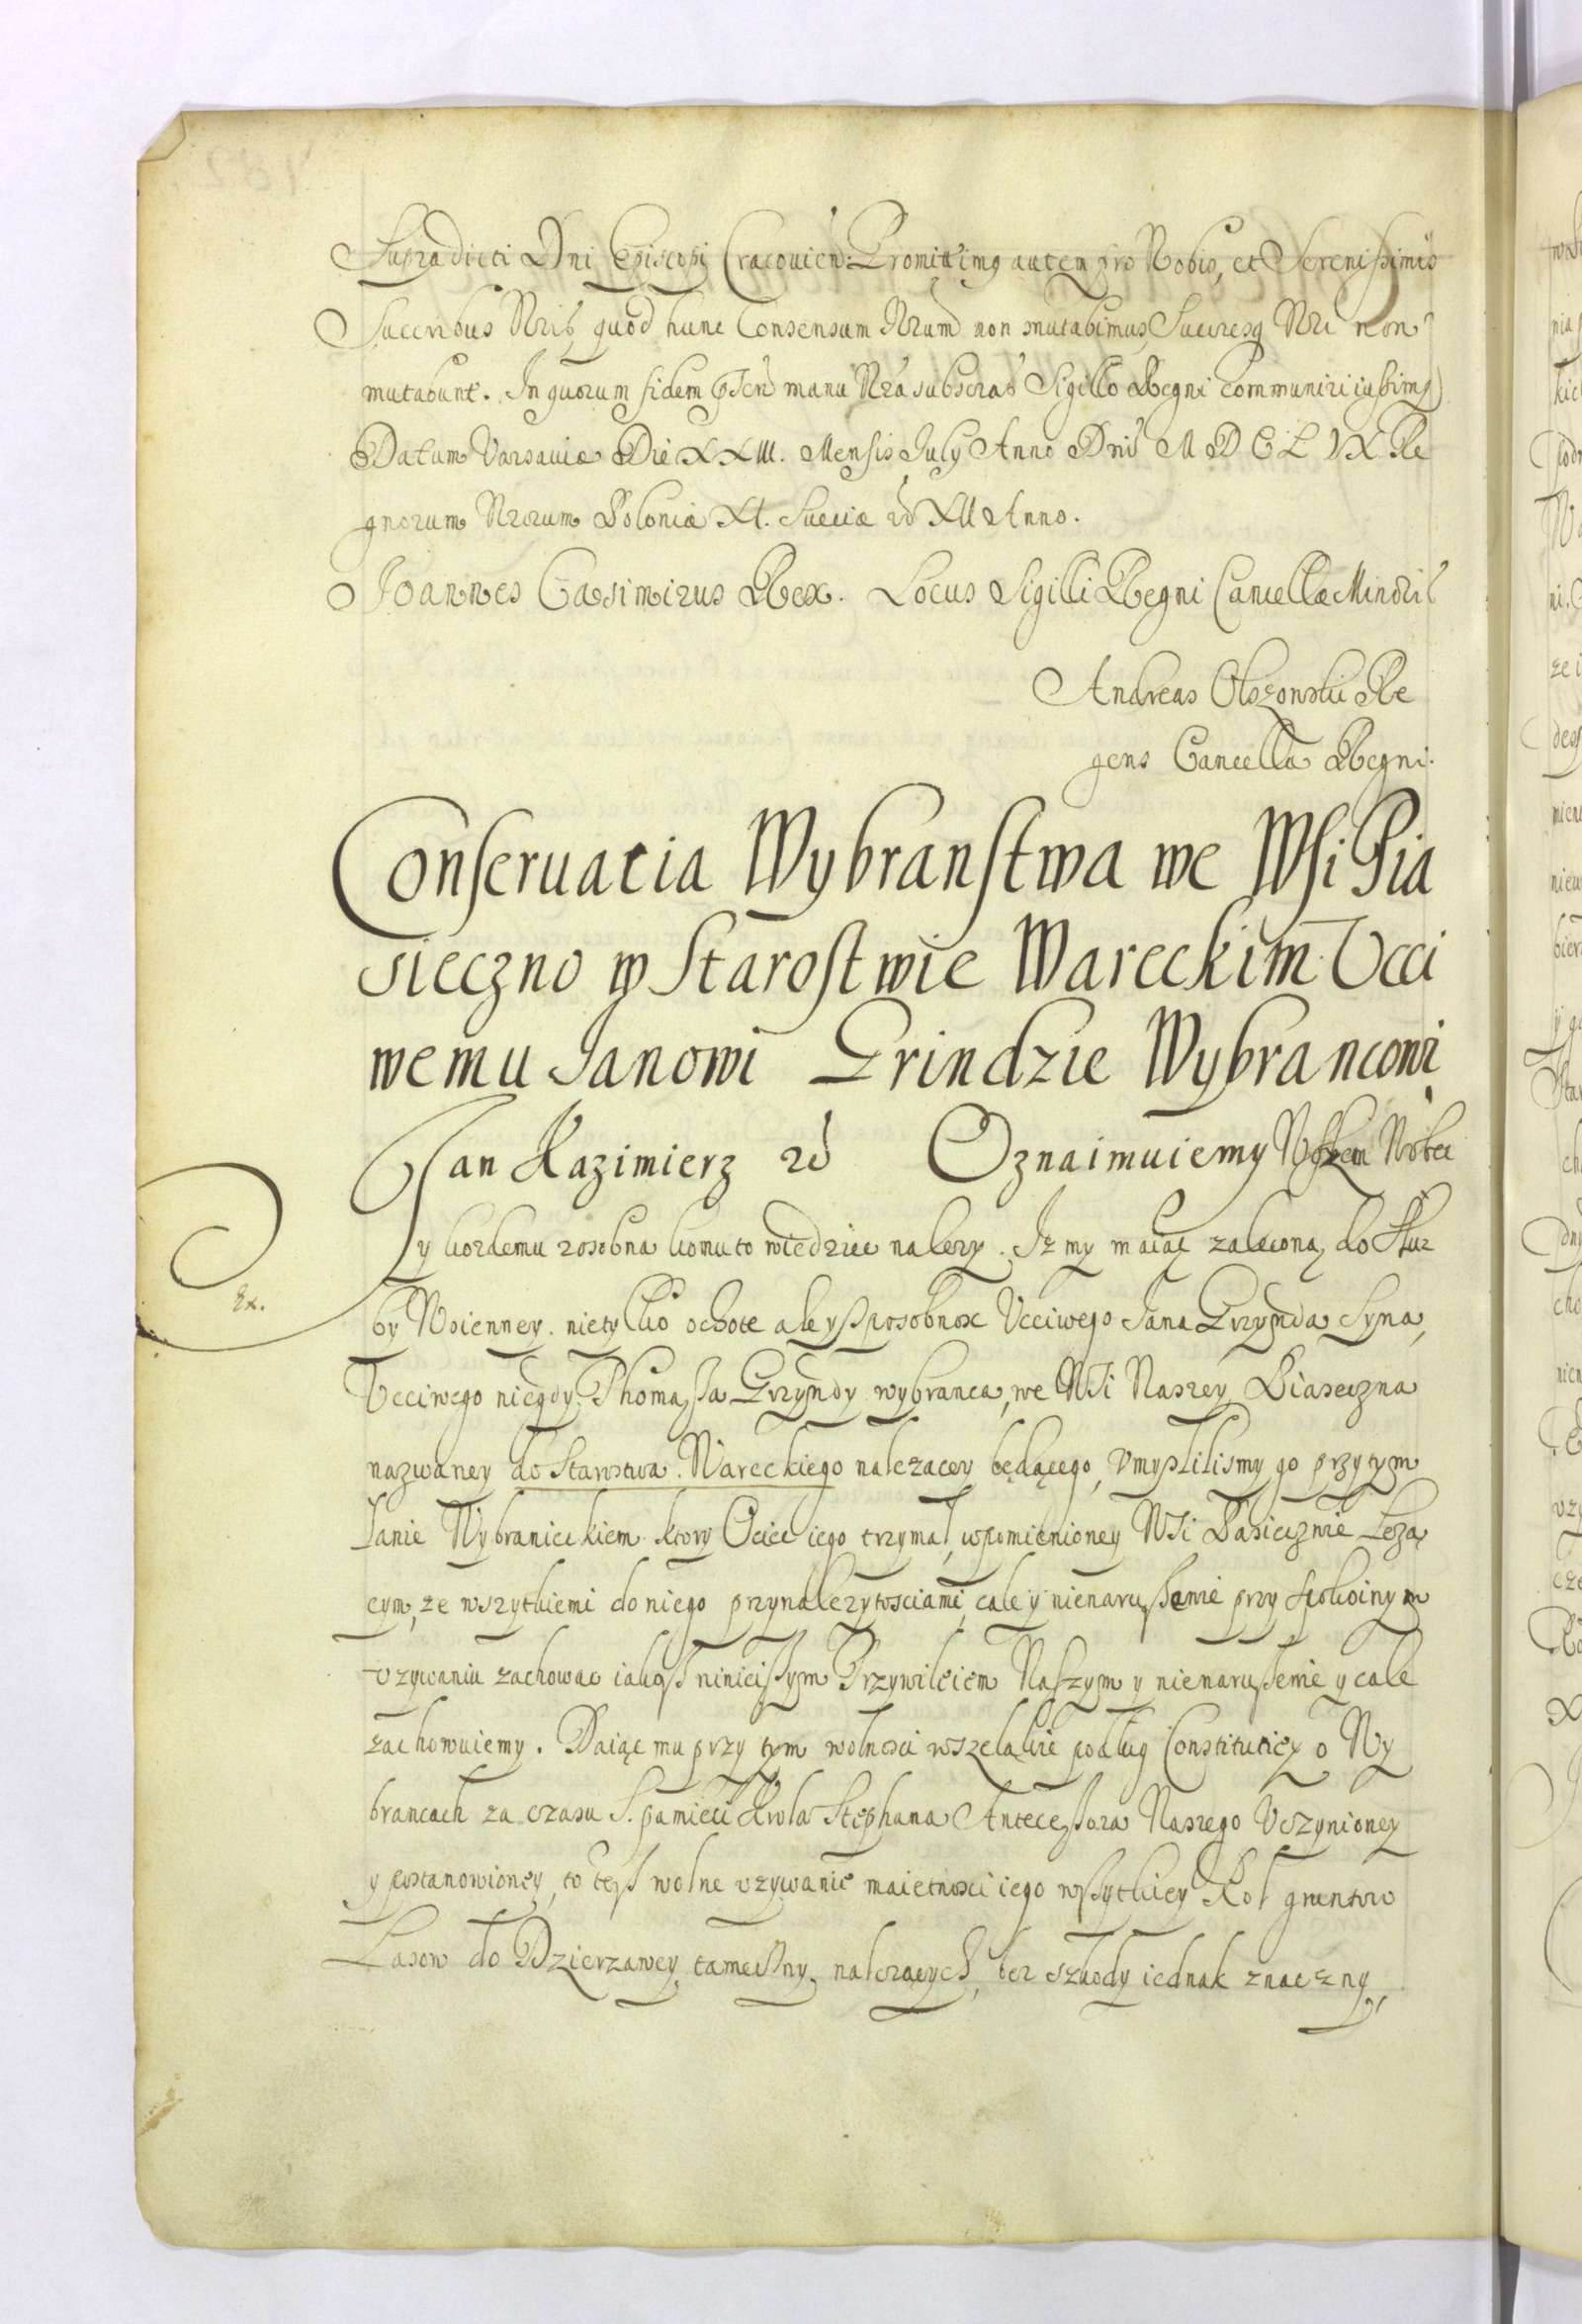 Supradicti Dni Episcopi Cracovien: Promittimq autem pro Nobis, et Serenissimis
Succribus Nris, quod hunc Consensum Nrum non mutabimus, Succresq Nri non
mutabunt. In quorum fidem psen manu Nra subscras Sigillo Regni communiri iussimq
Datum Varsaviæ Die XXIII. Mensis July Anno Dni M D C L I X Re
gnorum Nrorum Poloniæ XI. Sueciæ vo XII Anno.
Joannes Casimirus Rex. Locus Sigilli Regni Cancellæ Minoris
Andreas Olszowski Re
gens Cancellæ Regni.
Conservatia Wybranstwa we Wsi Pia
sieczno w Starostwie Wareckim Ucci
wemu Janowi Grindzie Wybrancowi
Jan Kazimierz &c Oznaimuiemy
y kozdemu zosobna komu to wiedziec nalezy. Iz my maiąc zaleconą do Słuz
by Woienney. nietylko ochote ale y sposobnosc Ucciwego Jana Grzynda Syna,
Ucciwego niegdy Thomassa Grzyndy wybranca, we Wsi Naszey Piaseczna
nazwaney do Starostwa. Wareckiego nalezacey będącego, vmyslilismy go przy tym
Łanie Wybranieckiem. ktory Ociec iego trzymał, wpomienioney Wsi Pasiecznie Leżą
cym, ze wszytkiemi do niego przynalezytosciami, cale y nienarussenie przy spokoinym
vzywaniu zachowac iakosz ninieiszym Przywileiem Naszym y nienarussenie y cale
zachowuiemy. Daiąc mu przy tym wolnosci wszelakie podług Constituciey o Wy
brancach za czasu S. pamieci Krola Stephana Antecessora Naszego Uczynioney
y postanowioney, to tesz wolne vzywanie maietnosci iego wszytkiey Rol gruntow
Lasow do Dzierzawey tameczny, nalezących, bez szkody iednak znaczny,
Ex.